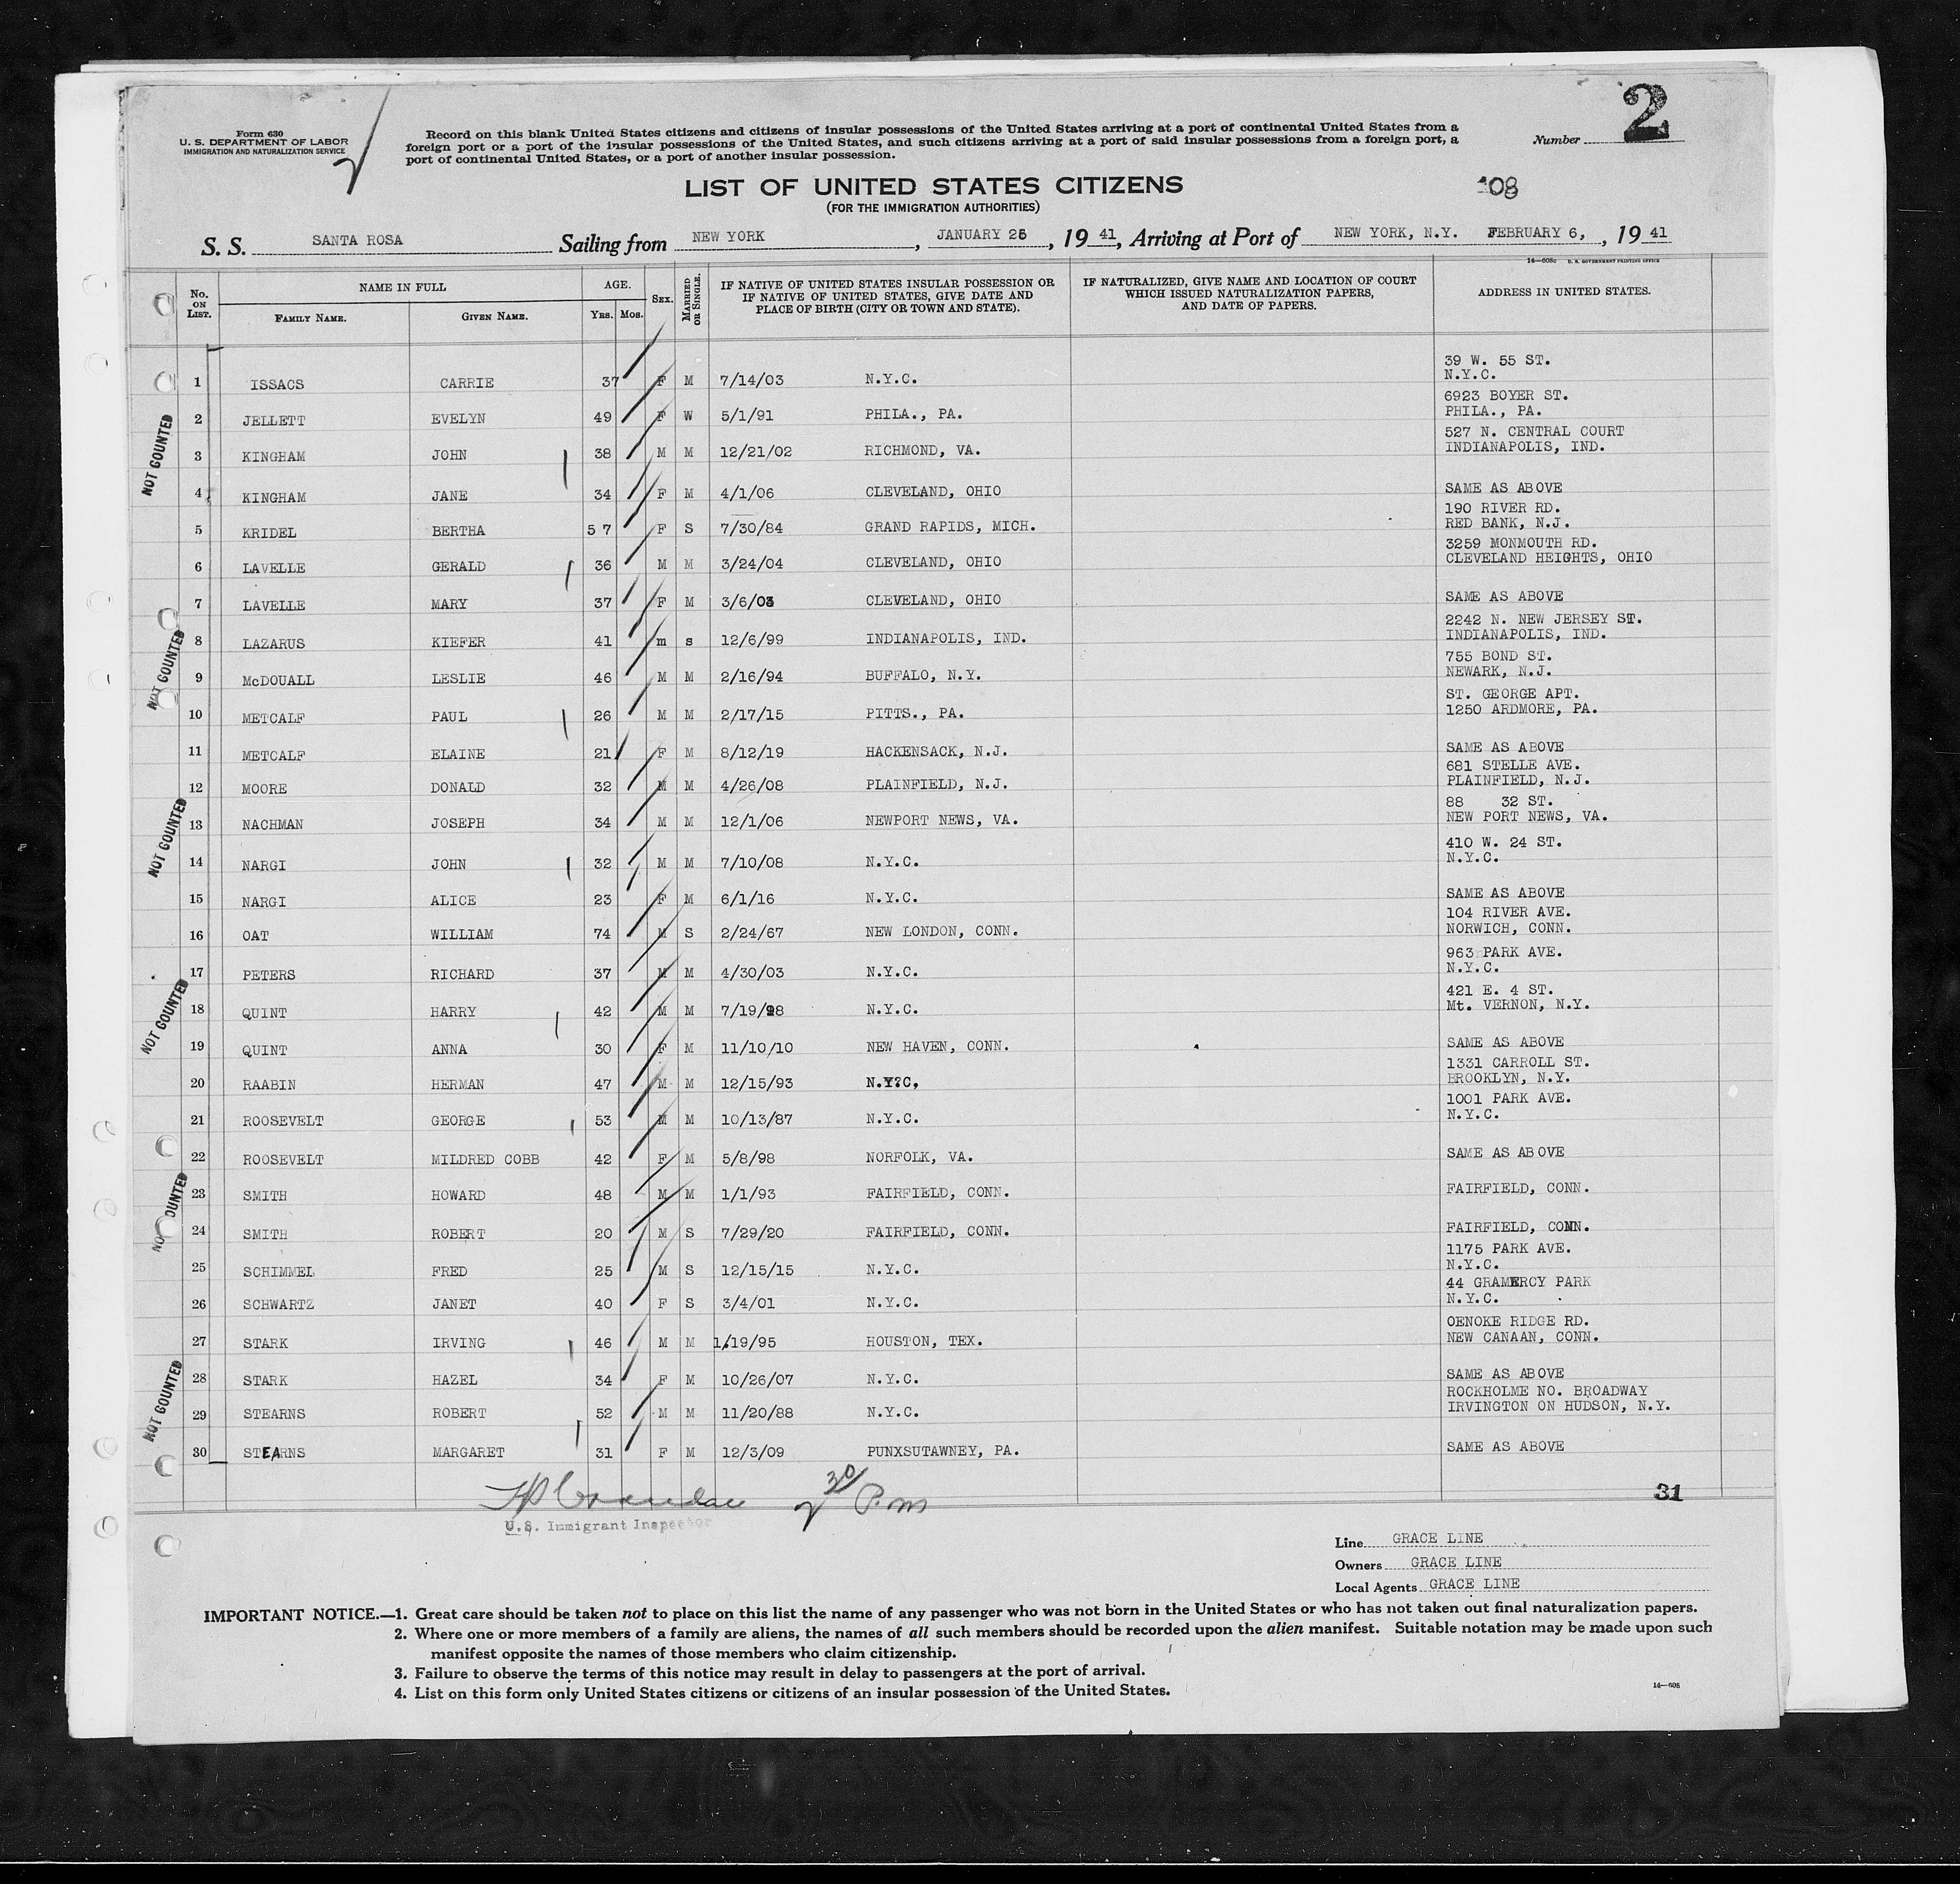 2
Form 630
U. S. DEPARTMENT OF LABOR
IMMIGRATION AND NATURALIZATION SERVICE
Record on this blank United States citizens and citizens of insular possessions of the United States arriving at a port of continental United States from a
foreign port or a port of the insular possessions of the United States, and such citizens arriving at a port of said insular possessions from a foreign port, a
port of continental United States, or a port of another insular possession.
Number
LIST OF UNITED STATES CITIZENS
(FOR THE IMMIGRATION AUTHORITIES)
108
S. S. SANTA ROSA Sailing from NEW YORK, JANUARY 25, 19 41, Arriving at Port of NEW YORK, N.Y. FEBRUARY 6, , 19 41
14—608c U. S. GOVERNMENT PRINTING OFFICE
No. ON LIST. NAME IN FULL FAMILY NAME. GIVEN NAME. AGE. YRS. MOS. SEX. MARRIED OR SINGLE. IF NATIVE OF UNITED STATES INSULAR POSSESSION OR IF NATIVE OF UNITED STATES, GIVE DATE AND PLACE OF BIRTH (CITY OR TOWN AND STATE). IF NATURALIZED, GIVE NAME AND LOCATION OF COURT WHICH ISSUED NATURALIZATION PAPERS, AND DATE OF PAPERS. ADDRESS IN UNITED STATES.
1 ISSACS CARRIE 37 F M 7/14/03 N.Y.C. 39 W. 55 ST. N.Y.C.
2 JELLETT EVELYN 49 F W 5/1/91 PHILA., PA. 6923 BOYER ST. PHILA., PA.
3 KINGHAM JOHN 38 M M 12/21/02 RICHMOND, VA. 527 N. CENTRAL COURT INDIANAPOLIS, IND.
4 KINGHAM JANE 34 F M 4/1/06 CLEVELAND, OHIO SAME AS ABOVE
5 KRIDEL BERTHA 57 F S 7/30/84 GRAND RAPIDS, MICH. 190 RIVER RD. RED BANK, N.J.
6 LAVELLE GERALD 36 M M 3/24/04 CLEVELAND, OHIO 3259 MONMOUTH RD. CLEVELAND HEIGHTS, OHIO
7 LAVELLE MARY 37 F M 3/6/03 CLEVELAND, OHIO SAME AS ABOVE
8 LAZARUS KIEFER 41 m s 12/6/99 INDIANAPOLIS, IND. 2242 N. NEW JERSEY ST. INDIANAPOLIS, IND.
9 McDOUALL LESLIE 46 M M 2/16/94 BUFFALO, N.Y. 755 BOND ST. NEWARK, N.J.
10 METCALF PAUL 26 M M 2/17/15 PITTS., PA. ST. GEORGE APT. 1250 ARDMORE, PA.
11 METCALF ELAINE 21 F M 8/12/19 HACKENSACK, N.J. SAME AS ABOVE
12 MOORE DONALD 32 M M 4/26/08 PLAINFIELD, N.J. 681 STELLE AVE. PLAINFIELD, N.J.
13 NACHMAN JOSEPH 34 M M 12/1/06 NEWPORT NEWS, VA. 88 32 ST. NEW PORT NEWS, VA.
14 NARGI JOHN 32 M M 7/10/08 N.Y.C. 410 W. 24 ST. N.Y.C.
15 NARGI ALICE 23 F M 6/1/16 N.Y.C. SAME AS ABOVE
16 OAT WILLIAM 74 M S 2/24/67 NEW LONDON, CONN. 104 RIVER AVE. NORWICH, CONN.
17 PETERS RICHARD 37 M M 4/30/03 N.Y.C. 963 PARK AVE. N.Y.C.
18 QUINT HARRY 42 M M 7/19/98 N.Y.C. 421 E. 4 ST. Mt. VERNON, N.Y.
19 QUINT ANNA 30 F M 11/10/10 NEW HAVEN, CONN. SAME AS ABOVE
20 RAABIN HERMAN 47 M M 12/15/93 N.Y.C. 1331 CARROLL ST. BROOKLYN, N.Y.
21 ROOSEVELT GEORGE 53 M M 10/13/87 N.Y.C. 1001 PARK AVE. N.Y.C.
22 ROOSEVELT MILDRED COBB 42 F M 5/8/98 NORFOLK, VA. SAME AS ABOVE
23 SMITH HOWARD 48 M M 1/1/93 FAIRFIELD, CONN. FAIRFIELD, CONN.
24 SMITH ROBERT 20 M S 7/29/20 FAIRFIELD, CONN. FAIRFIELD, CONN.
25 SCHIMMEL FRED 25 M S 12/15/15 N.Y.C. 1175 PARK AVE. N.Y.C.
26 SCHWARTZ JANET 40 F S 3/4/01 N.Y.C. 44 GRAMERCY PARK N.Y.C.
27 STARK IRVING 46 M M 1/19/95 HOUSTON, TEX. OENOKE RIDGE RD. NEW CANAAN, CONN.
28 STARK HAZEL 34 F M 10/26/07 N.Y.C. SAME AS ABOVE
29 STEARNS ROBERT 52 M M 11/20/88 N.Y.C. ROCKHOLME NO. BROADWAY IRVINGTON ON HUDSON, N.Y.
30 STEARNS MARGARET 31 F M 12/3/09 PUNXSUTAWNEY, PA. SAME AS ABOVE
NOT COUNTED
NOT COUNTED
NOT COUNTED
NOT COUNTED
NOT COUNTED
NOT COUNTED
2 30 P.m
31
U.S. Immigrant Inspector
Line GRACE LINE
Owners GRACE LINE
Local Agents GRACE LINE
IMPORTANT NOTICE.—1. Great care should be taken not to place on this list the name of any passenger who was not born in the United States or who has not taken out final naturalization papers.
2. Where one or more members of a family are aliens, the names of all such members should be recorded upon the alien manifest. Suitable notation may be made upon such
manifest opposite the names of those members who claim citizenship.
3. Failure to observe the terms of this notice may result in delay to passengers at the port of arrival.
4. List on this form only United States citizens or citizens of an insular possession of the United States.
14—608